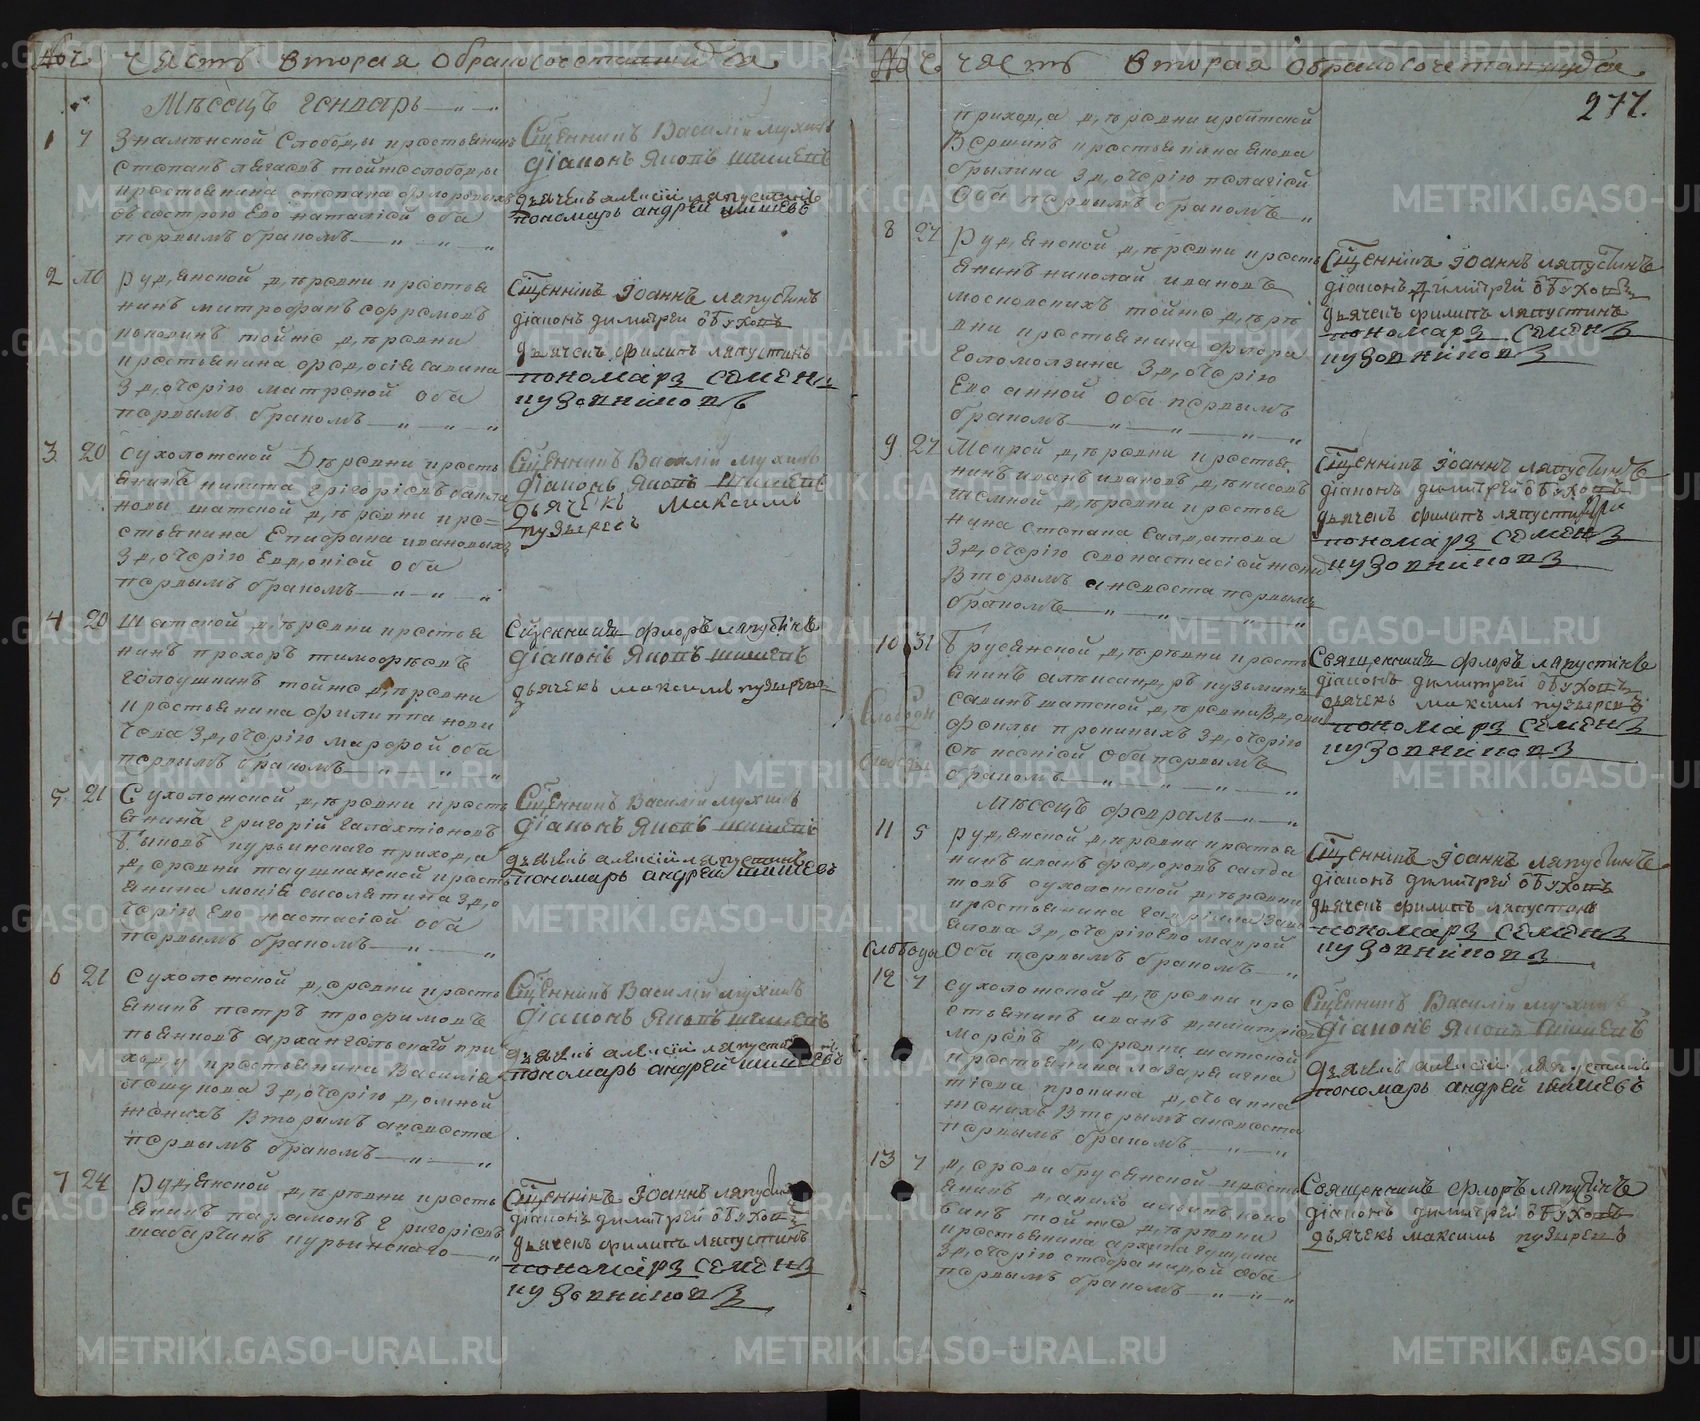 № Ч. Часть вторая обракосочетавшихся
Мѣсецъ генварь
1 7 Знамѣнской Слободы крестьянинъ
степанъ тойже слободы
крестьянина степана
сестрою Ево наталіей оба
первымъ бракомъ
Священникъ Василій Мухинъ
Діаконъ Яковъ Шишевъ
дьячекъ алексій ляпустинъ
пономарь андрей шишевъ
2 10 Рудянской дѣревни крестья
нинъ митрофанъ ефремовъ
тойже дѣревни
крестьянина федосія савина
Здочерію матреной оба
первымъ бракомъ
Священникъ Іоаннъ ляпустинъ
діаконъ димитрей обуховъ
дьячекъ филипъ ляпустинъ
пономарз семенз
пузовниковз
3 20 Сухоложской Дѣревни кресть
янинъ никита григоріевъ
новы шатской дѣревни кре=
стьянина Епифана ивановыхъ
Здочерію Евдокіей оба
первымъ бракомъ
Священникъ Василій Мухинъ
Діаконъ Яковъ Шишевъ
дьячекъ Максимъ
пузыревъ
4 20 Шатской дѣревни крестья
нинъ прохоръ тимофѣевъ
тойже дѣревни
крестьянина филиппа
Здочерію марфой оба
первымъ бракомъ
Священникъ флоръ ляпустинъ
діаконъ Яковъ шишевъ
дьячекъ максимъ пузыревъ
5 21 Сухоложской дѣревни кресть
янинъ григорій галахтіоновъ
Быковъ курьинскаго прихода
деревни таушканской кресть
янина мокія сысолятина Здо
черію Ево настасіей оба
первымъ бракомъ
Священникъ Василій Мухинъ
Діаконъ Яковъ Шишевъ
дьячекъ алексій ляпустинъ
пономарь андрей шишевъ
6 21 Сухоложской деревни кресть
янинъ петръ трофимовъ
пьянковъ архангельскаго при
ходу крестьянина Василія
Здочерію домной
женихъ Вторымъ аневеста
первымъ бракомъ
Священникъ Василій Мухинъ
Діаконъ Яковъ шишевъ
дьячекъ алексій
пономарь андрей шишевъ
7 24 Рудянской дѣревни кресть
янинъ парамонъ григоріевъ
шабаргинъ курьинскаго
Священникъ Іоаннъ
діаконъ димитрей обуховъ
дьячекъ филипъ ляпустинъ
пономарз семенз
пузовниковз
№ Ч. Часть вторая обракосочетавшихся
277.
прихода дѣревни ирбитской
Вершинъ крестьянина якова
брылина Здочерію пелагіей
Оба первымъ бракомъ
8 27 Рудянской дѣревни кресть
янинъ николай ивановъ
московскихъ тойже дѣре
вни крестьянина флора
голомолзина Здочерію
Ево анной Оба первымъ
бракомъ
Священникъ Іоаннъ ляпустинъ
діаконъ димитрей обуховъ
дьячекъ филипъ ляпустинъ
пономарз семенз
пузовниковз
9 27 Мокрой дѣревни крестья
нинъ иванъ ивановъ денисовъ
дѣревни крестья
нина степана Салдатова
Здочерію ево настасіей женихъ
Вторымъ аневеста первымъ
бракомъ
Священникъ Іоаннъ ляпустинъ
діаконъ димитрей обуховъ
дьячекъ филипъ
пономарз семенз
пузовниковз
10 31 Брусянской дѣревни кресть
янинъ александръ кузьминъ
савинъ шатской дѣревни
Здочерію
Оба первымъ
бракомъ
Слободы
Священникъ флоръ ляпустинъ
діаконъ димитрей обуховъ
дьячекъ максимъ пузыревъ
пономарз семенз
пузовниковз
Мѣсецъ февраль
11 5 рудянской дѣревни крестья
нинъ иванъ федоровъ салда
товъ сухоложской дѣревни
крестьянина гавріила
Здочерію Ево маврой
Слободы Оба первымъ бракомъ
Священникъ Іоаннъ ляпустинъ
діаконъ димитрей обуховъ
дьячекъ филипъ ляпустинъ
пономарз семенз
пузовниковз
12 7 Сухоложской дѣревни кре
стьянинъ иванъ димитріевъ
деревни шатской
крестьянина лазаря игна
тіева пронина дочь анна
женихъ Вторымъ аневеста
первымъ бракомъ
Священникъ Василій Мухинъ
Діаконъ Яковъ Шишевъ
дьячекъ алексій ляпустинъ
пономарь андрей шишевъ
13 7 Деревни брусянской кресть
янинъ данило
тойже дѣревни
крестьянина архипа гущина
Здочерію стефанидой Оба
первымъ бракомъ
Священникъ флоръ ляпустинъ
діаконъ димитрей обуховъ
дьячекъ максимъ пузыревъ